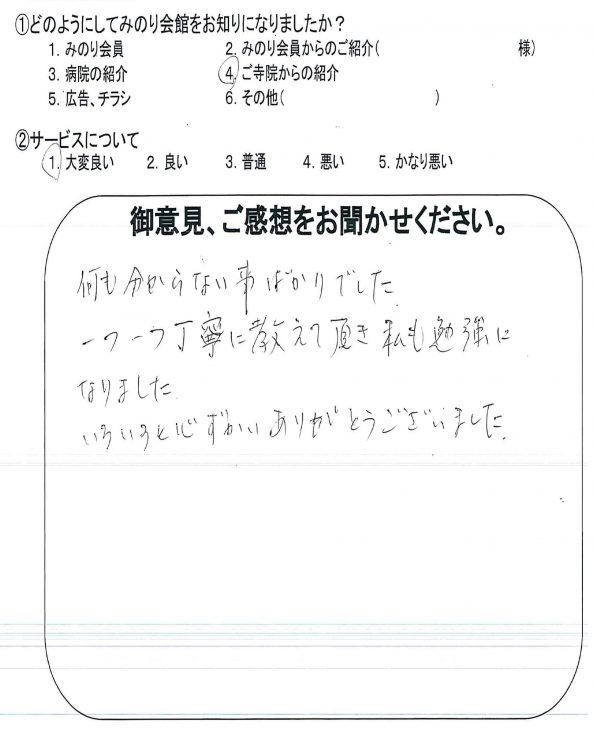 ①どのようにしてみのり会館をお知りになりましたか？
1. みのり会員　2. みのり会員からのご紹介(　様)
3. 病院の紹介　4. ご寺院からの紹介
5. 広告、チラシ　6. その他(　)
②サービスについて
1. 大変良い　2. 良い　3. 普通　4. 悪い　5. かなり悪い
御意見、ご感想をお聞かせください。
何も分からない事ばかりでした
一つ一つ丁寧に教えて頂き私も勉強に
なりました
いろいろと心ずかいありがとうございました